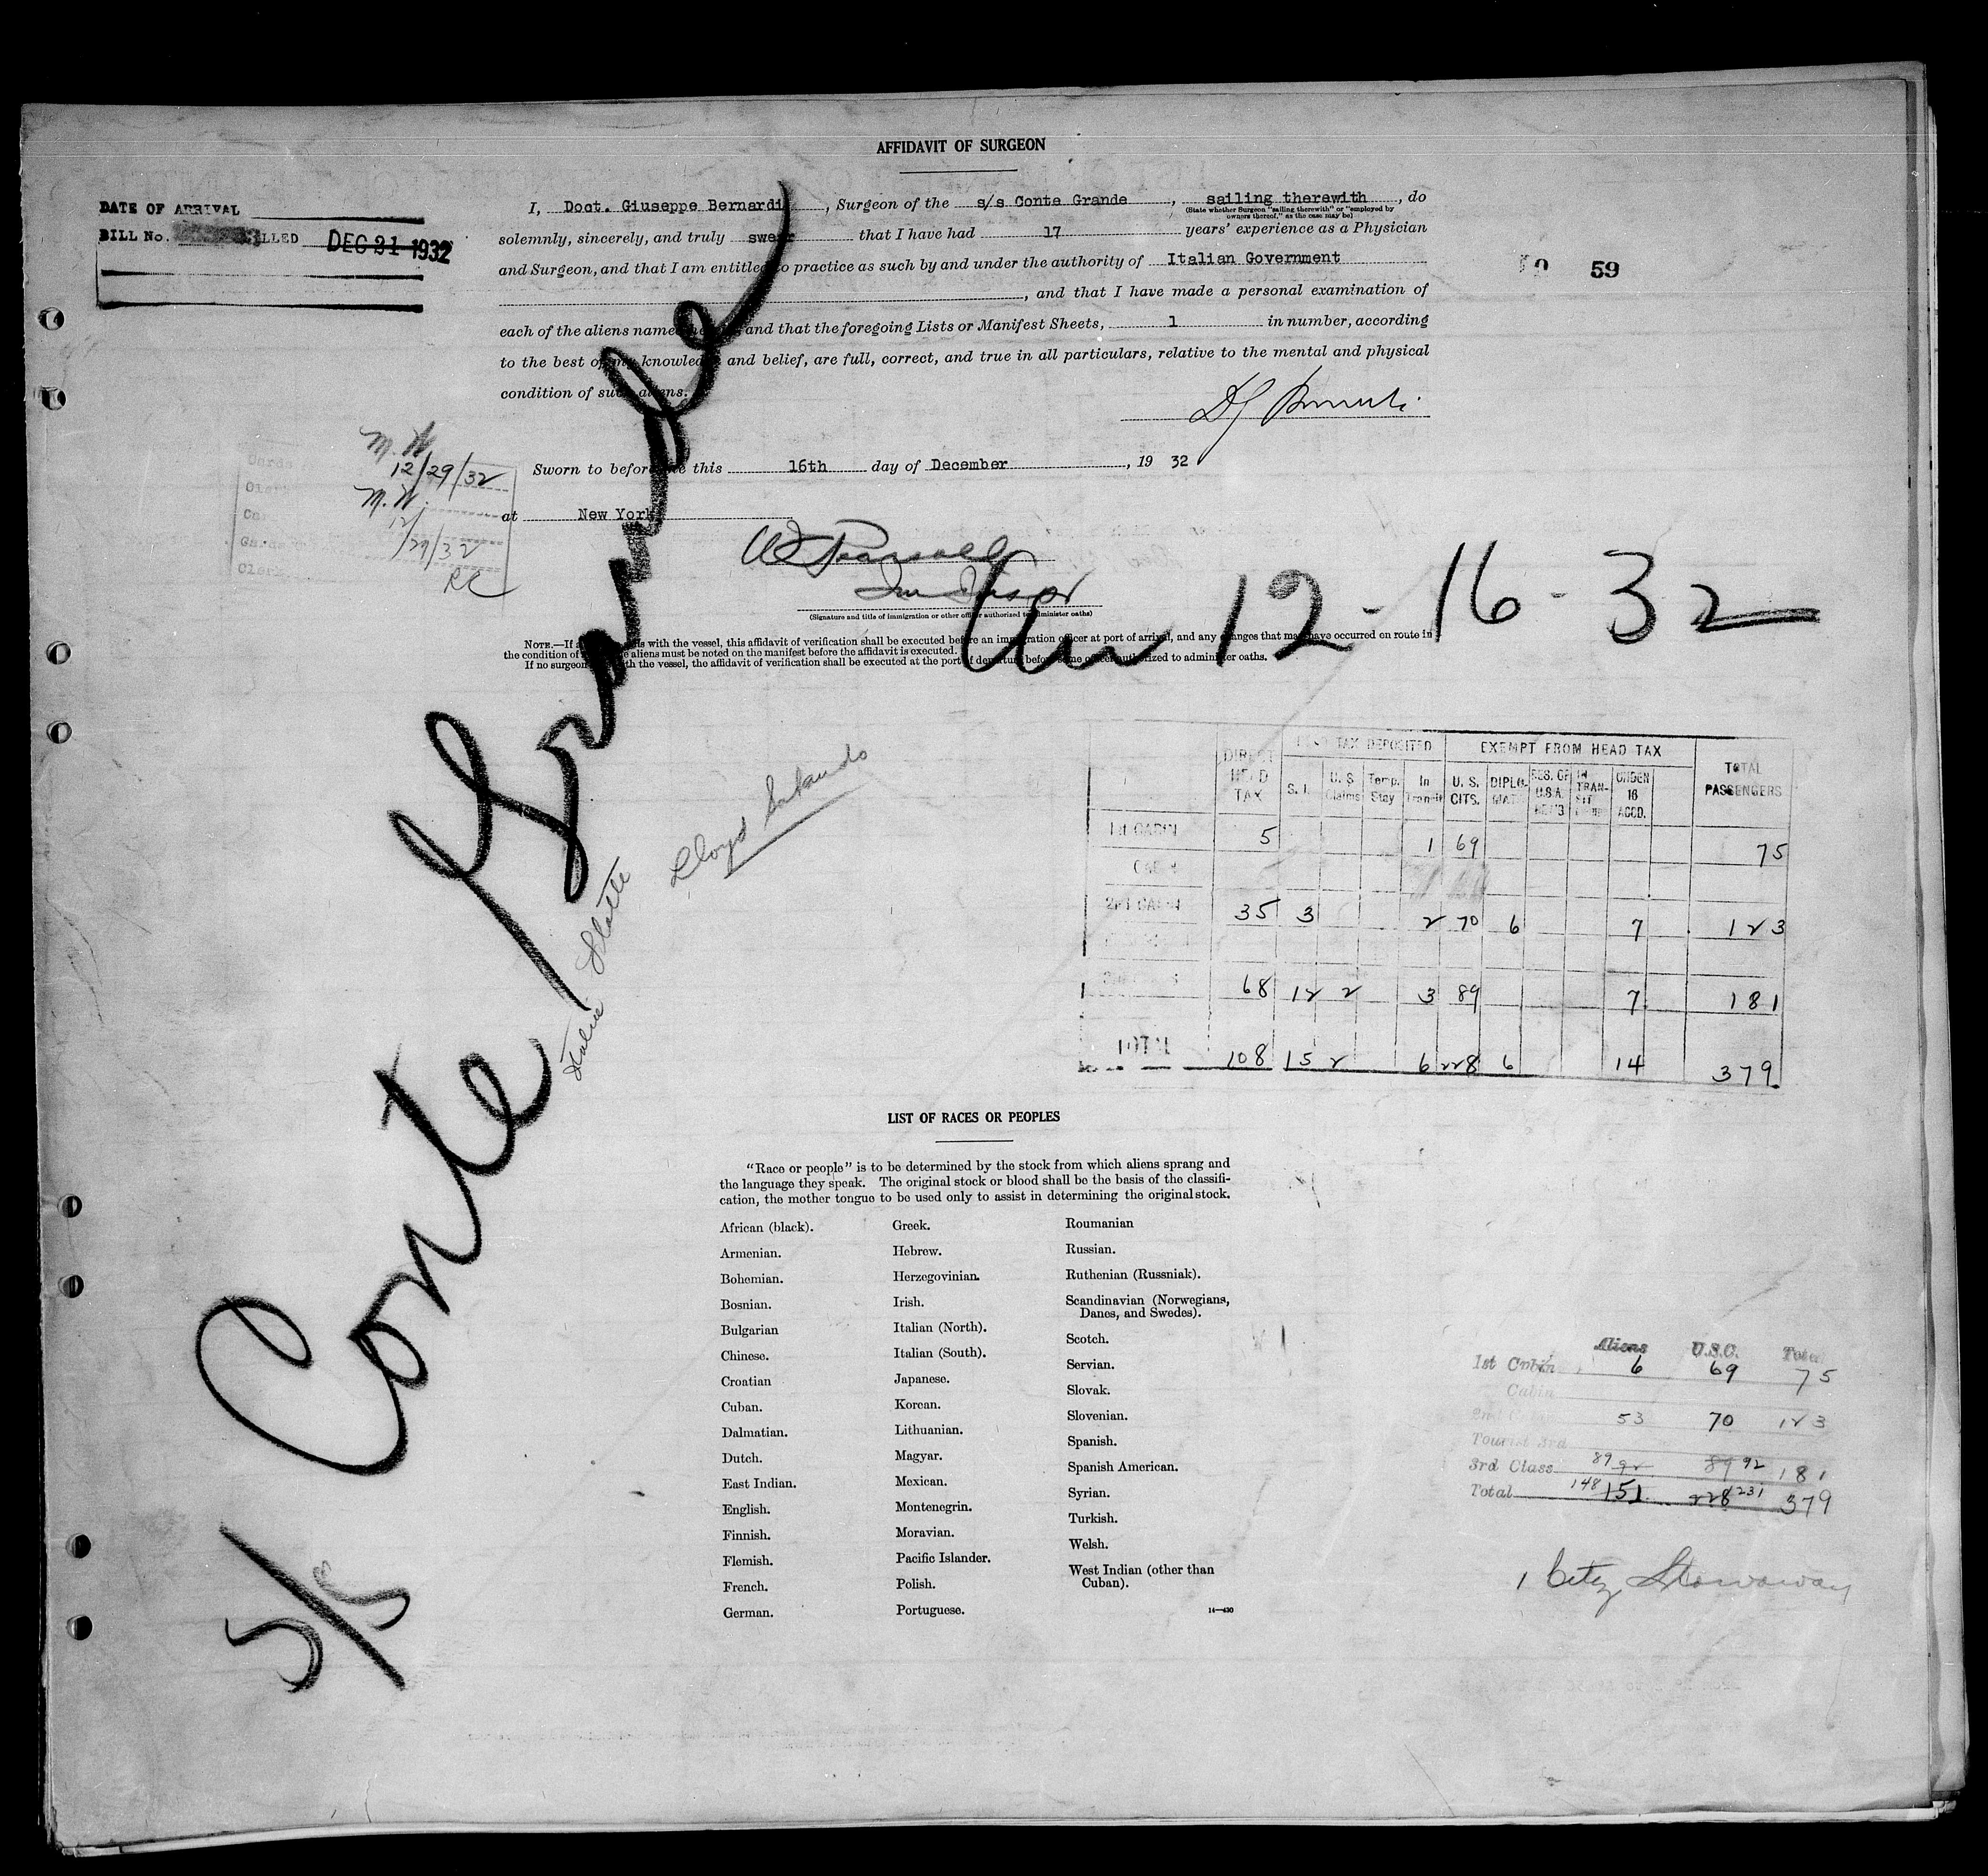 AFFIDAVIT OF SURGEON
DATE OF ARRIVAL
BILL No. LLED DEC 21 1932
I, Doct. Giuseppe Bernardi, Surgeon of the s/s Conte Grande, sailing therewith, do
(State whether Surgeon "sailing therewith" or "employed by
owners thereof," as the case may be)
solemnly, sincerely, and truly swear that I have had 17 years' experience as a Physician
and Surgeon, and that I am entitled to practice as such by and under the authority of Italian Government
, and that I have made a personal examination of
59
each of the aliens named and that the foregoing Lists or Manifest Sheets, 1 in number, according
to the best of my knowledge and belief, are full, correct, and true in all particulars, relative to the mental and physical
condition of such aliens.
M. W.
12/29/32
M. W.
12/29/32
RC
Sworn to before me this 16th day of December, 19 32
at New York
(Signature and title of immigration or other officer authorized to administer oaths)
NOTE.—If a is with the vessel, this affidavit of verification shall be executed before an immigration officer at port of arrival, and any changes that may have occurred on route in
the condition of aliens must be noted on the manifest before the affidavit is executed.
If no surgeon with the vessel, the affidavit of verification shall be executed at the port of departure before some officer authorized to administer oaths.
12-16-32
Conte Grande
Lloyd Sabaudo
5/5
DIRECT HEAD TAX HEAD TAX DEPOSITED EXEMPT FROM HEAD TAX TOTAL PASSENGERS
S. I. U. S. Claims Temp. Stay In Transit U. S. CITS. DIPLOMATS RES. OF U.S.A. IN TRANSIT UNDER 16 ACCD.
1st CABIN 5 1 69 75
CABIN
2nd CABIN 35 3 2 70 6 7 123
68 12 2 3 89 7 181
TOTAL 108 15 2 6 228 6 14 379
LIST OF RACES OR PEOPLES
"Race or people" is to be determined by the stock from which aliens sprang and
the language they speak. The original stock or blood shall be the basis of the classifi-
cation, the mother tongue to be used only to assist in determining the original stock.
African (black).
Armenian.
Bohemian.
Bosnian.
Bulgarian
Chinese.
Croatian
Cuban.
Dalmatian.
Dutch.
East Indian.
English.
Finnish.
Flemish.
French.
German.
Greek.
Hebrew.
Herzegovinian.
Irish.
Italian (North).
Italian (South).
Japanese.
Korean.
Lithuanian.
Magyar.
Mexican.
Montenegrin.
Moravian.
Pacific Islander.
Polish.
Portuguese.
Roumanian
Russian.
Ruthenian (Russniak).
Scandinavian (Norwegians,
Danes, and Swedes).
Scotch.
Servian.
Slovak.
Slovenian.
Spanish.
Spanish American.
Syrian.
Turkish.
Welsh.
West Indian (other than
Cuban).
14—430
Aliens U.S.C. Total
1st Cabin 6 69 75
Cabin
2nd 53 70 123
Tourist 3rd
3rd Class 89 92 89 92 181
Total 148 151 228 231 379
1 Citz Stowaway